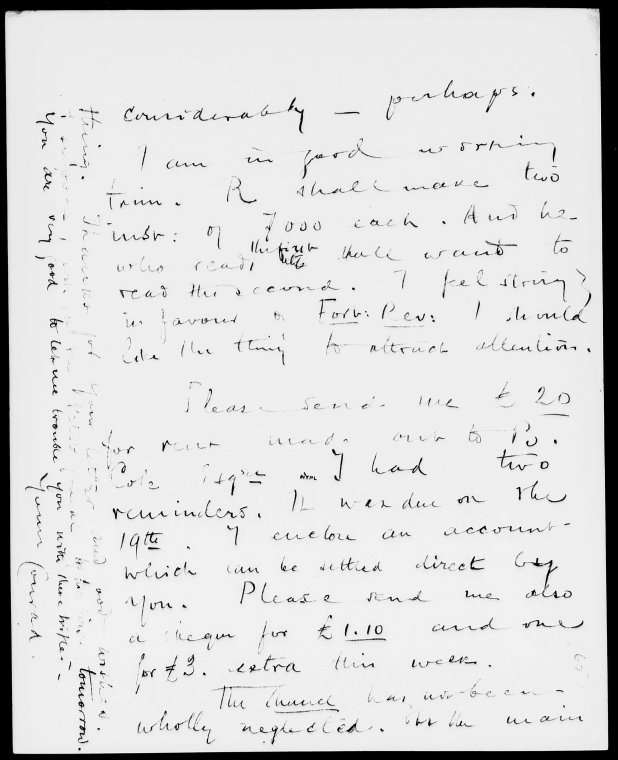 considerably — perhaps.
I am in good working
trim. R shall make two
inst: of 7000 each. And he
who reads the first shall want to
read the second. I feel strongly
in favour of Fort: Rev: I should
like the thing to attract attention.
Please send me £ 20
for rent made out to
Cole Esqre I had two
reminders. It was due on the
19th. I enclose an account
which can be settled direct by
you. Please send me also
a cheque for £1.10 and one
for £3. extra this week.
The Chance has not been
wholly neglected. In the main
thing. Thanks for your letter and good wishes.
tomorrow.
You are very good to let me trouble you with these trifles.
Yours Conrad.